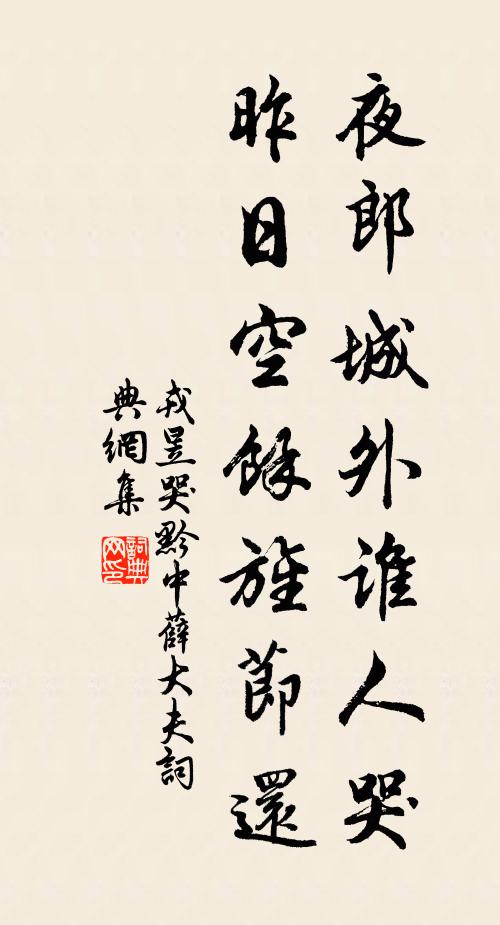 夜郎城外谁人哭
昨日空餘旌節還
戎昱哭黔中薛大夫詞
典網集
詞典网印